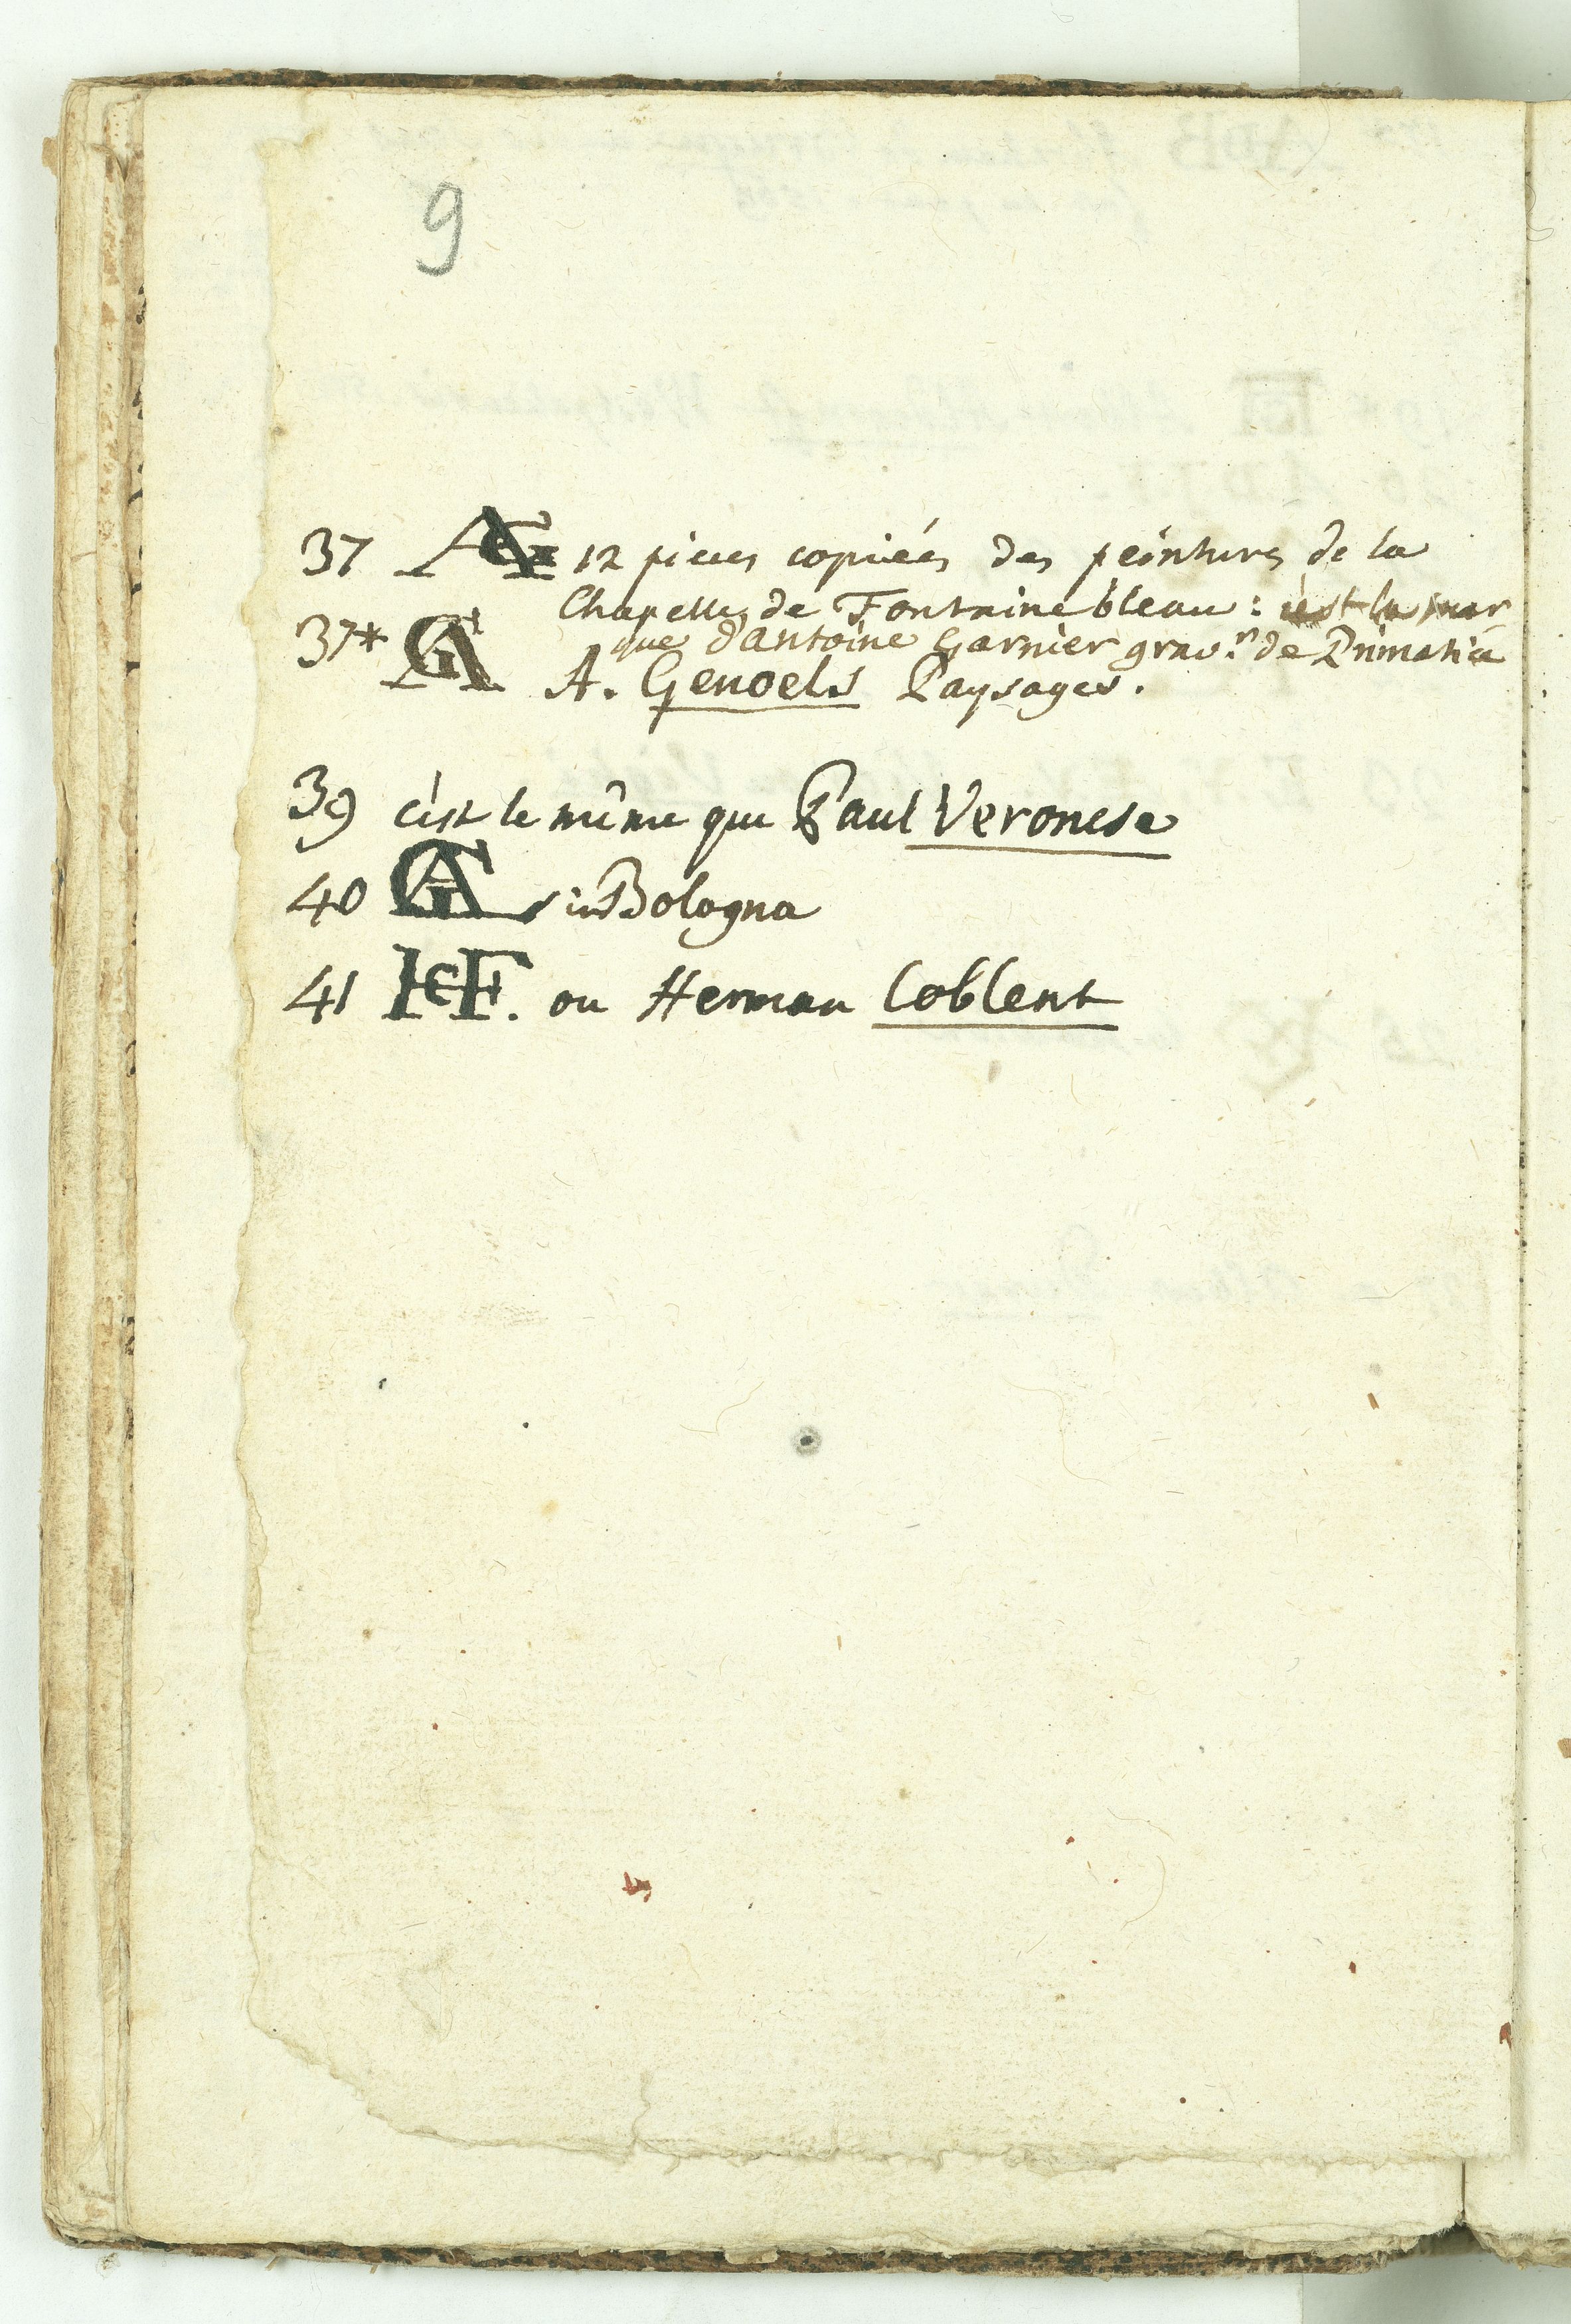 9
37 AG 12 pieces copiées des peintures de la
Chapelle de Fontainebleau : c'est la mar
que d'antoine Garnier grav.r de Primatic
37* GA A. Genoels Paysages.
39 c'est le même que Paul Veronese
40 GA in Bologna
41 HCF. ou Herman Coblent